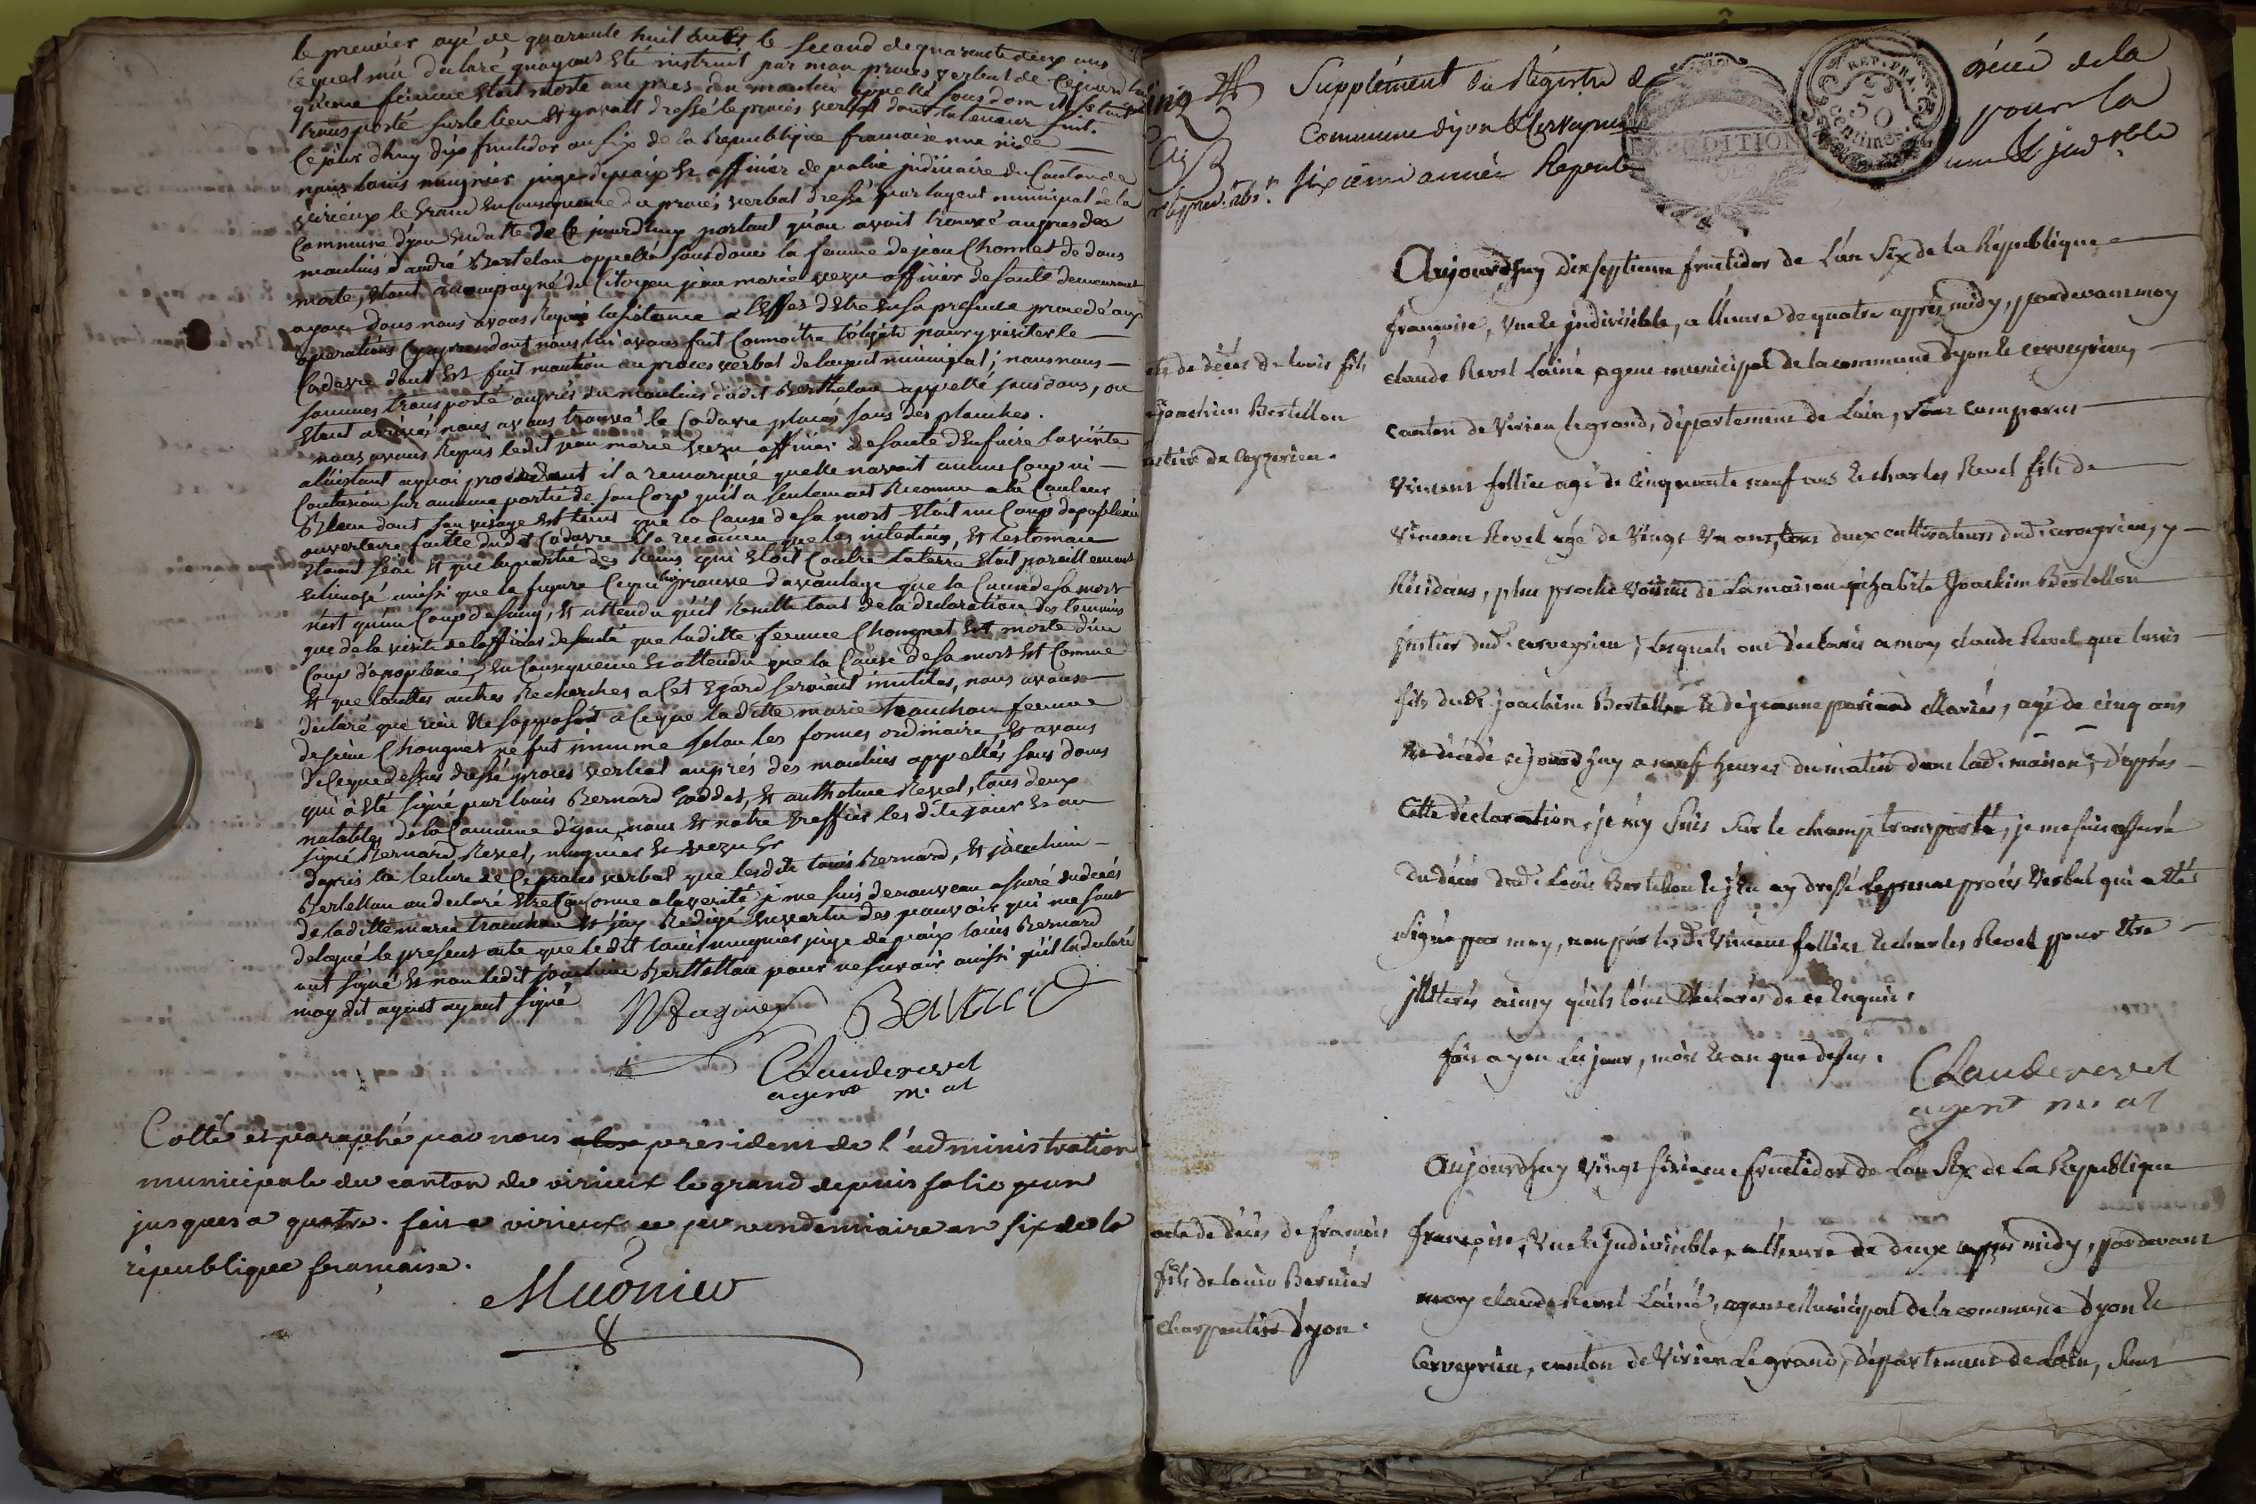 le premier agé de quarante huit ans le second de quarante deux ans
lequel m'a declaré qu'ayant eté instruit par mon proces verbal de ce jourdhui
qu'une femme etoit morte au pres du moulin appellé sous dom
transporté sur le lieu et y avoit dressé le proces verbal dont la teneur suit.
Ce jour d'huy dix fructidor an six de la Republique francaise une
nous louis mugnier juge de paix et officier de police judiciaire du Canton de
virieux le Grand en Consequence du procés verbal dressé par lagent municipal de la
Commune d'yon en datte de ce jourdhuy portant qu'on avait trouvé aupres des
moulins d'andré Bertelon appellé sous dons la femme de jean Chongnet de dons
morte, etant accompagné du Citoyen jean marie vezu officier de santé demeurant
a dons nous avons requis lasistance a l'effet d'etre en sa presence procedé aux
operations dont nous lui avons fait Connoitre l'objet pour y visiter le
Cadavre dont est fait mention au proces verbal de lagent municipal; nous nous
sommes transporté auprés du moulin dudit Berthelon appellé sous dons, ou
etant arrivés nous avons trouvé le Cadavre placé sous des planches.
nous avons requis ledit jean marie vezu officier de santé d'en faire la visite
a l'instant a quoi procedant il a remarqué quelle n'avoit aucun Coup ni
Contusion sur aucune partie de son Corp qu'il a seulement Reconnu a la Couleur
Bleue dont son visage est teint que la Cause de sa mort etoit un Coup dapoplexie
ouverture faitte dudit Cadavre il a reconnu que les intestins, et lestomac
etoient sain et que la partie des Reins qui etoit Contre laterre etoit pareillement
ainsi que la figure Ce qui prouve davantage que la Cause de sa mort
n'est qu'un Coup de sang, et attendu qu'il Resulte tant de la declaration des temoins
que de la visite de lofficier de santé que laditte femme Chongnet est morte d'un
Coup d'apoplexie, en Consequence et attendu que la Cause de sa mort est Connue
et que touttes autres Recherches a Cet egard seroient inutiles, nous avons
declaré que rien ne sopposoit a Ce que laditte marie tranchon femme
de jean Chongnet ne fut inhumé selon les formes ordinaire et avons
de Ce que dessus dressé proces verbal auprés des moulins appellés sous dons
qui a eté signé par louis Bernard Goddet, et anthelme Revel, tous deux
notables de la Commune d'yon, nous et notre Greffier les dits jour et an
signé Bernard, Revel, mugnier et vezu
daprés la lecture de Ce proces verbal que lesdits louis Bernard, et joachim
Bertellon on declaré etre Conforme a la verité je me suis denouveau assuré du decés
de laditte marie tranchon et j'ay Redigé en vertu des pouvoirs qui me sont
delegué le present acte que ledit louis mugnier juge de paix louis Bernard
ont signé et non ledit joachim Berthellon pour ne savoir ainsi qu'il la declaré
moy dit agent ayant signé
Mugnier Bernard
Clauderevel
agent m. al
Cotté et paraphé par nous président de l'administration
municipale du canton de virieux le grand depuis folio un
jusques a quatre. fait a virieux ce vendemiaire an six de la
république francaise.
Mugnier
Supplément du Régistre de
Commune dyon & Cerveyrieu
Sixieme année Repub
décés de la
pour la
une & jnd.ble
EXPEDITION
REP. FRA.
50
centimes
acte de décés de louis fils
Joachim Bertillon
justier de Ceyzerieu.
Aujourdhuy dixseptieme fructidor de L'an Six de la République
françoise, Une & jndivisible, a lheure de quatre aprés midy, pardevant moy
claude Revel L'ainé agent municipal de la commune dyon & cerveyrieu,
canton de Virieu le grand, département de L'ain, sont comparus
Vincent follier agé de cinquante neuf ans & charles Revel fils de
Vincent Revel agé de Vingt Un ans, tous deux cultivateurs dud. cerveyrieu, y
Résidans, plus proche voisin de La maison qu'habite Joachim Bertellon
justier dud. cerveyrieu, lesquels ont déclarés a moy claude Revel que louis
fils dudt. joachim Bertellon & de jeanne pariend Mariés, agé de cinq ans
est décédé cejourdhuy a neuf heures du matin dans lad. maison; d'aprés
Cette déclaration, je m'y suis sur le champ transporté, je me suis assuré
du décés dud. Louis Bertellon & j'en ay dressé Le present procés Verbal qui a été
signé par moy, non par lesd. Vincent follier & charles Revel pour etre
jlliterés ainsy qu'ils l'ont déclarés de ce Enquis.
fait a yon les jour, mois & an que dessus.
Clauderevel
agent m. al
acte de décés de françois
fils de louis Bernier
charpentier dyon.
Aujourdhuy Vingt sixieme fructidor de L'an Six de La République
françoise, Une & jndivisible, a lheure de deux aprés midy, pardevant
moy claude Revel L'ainé, agent Municipal de la commune dyon &
Cerveyrieu, canton de Virieu Le grand, département de L'ain, sont